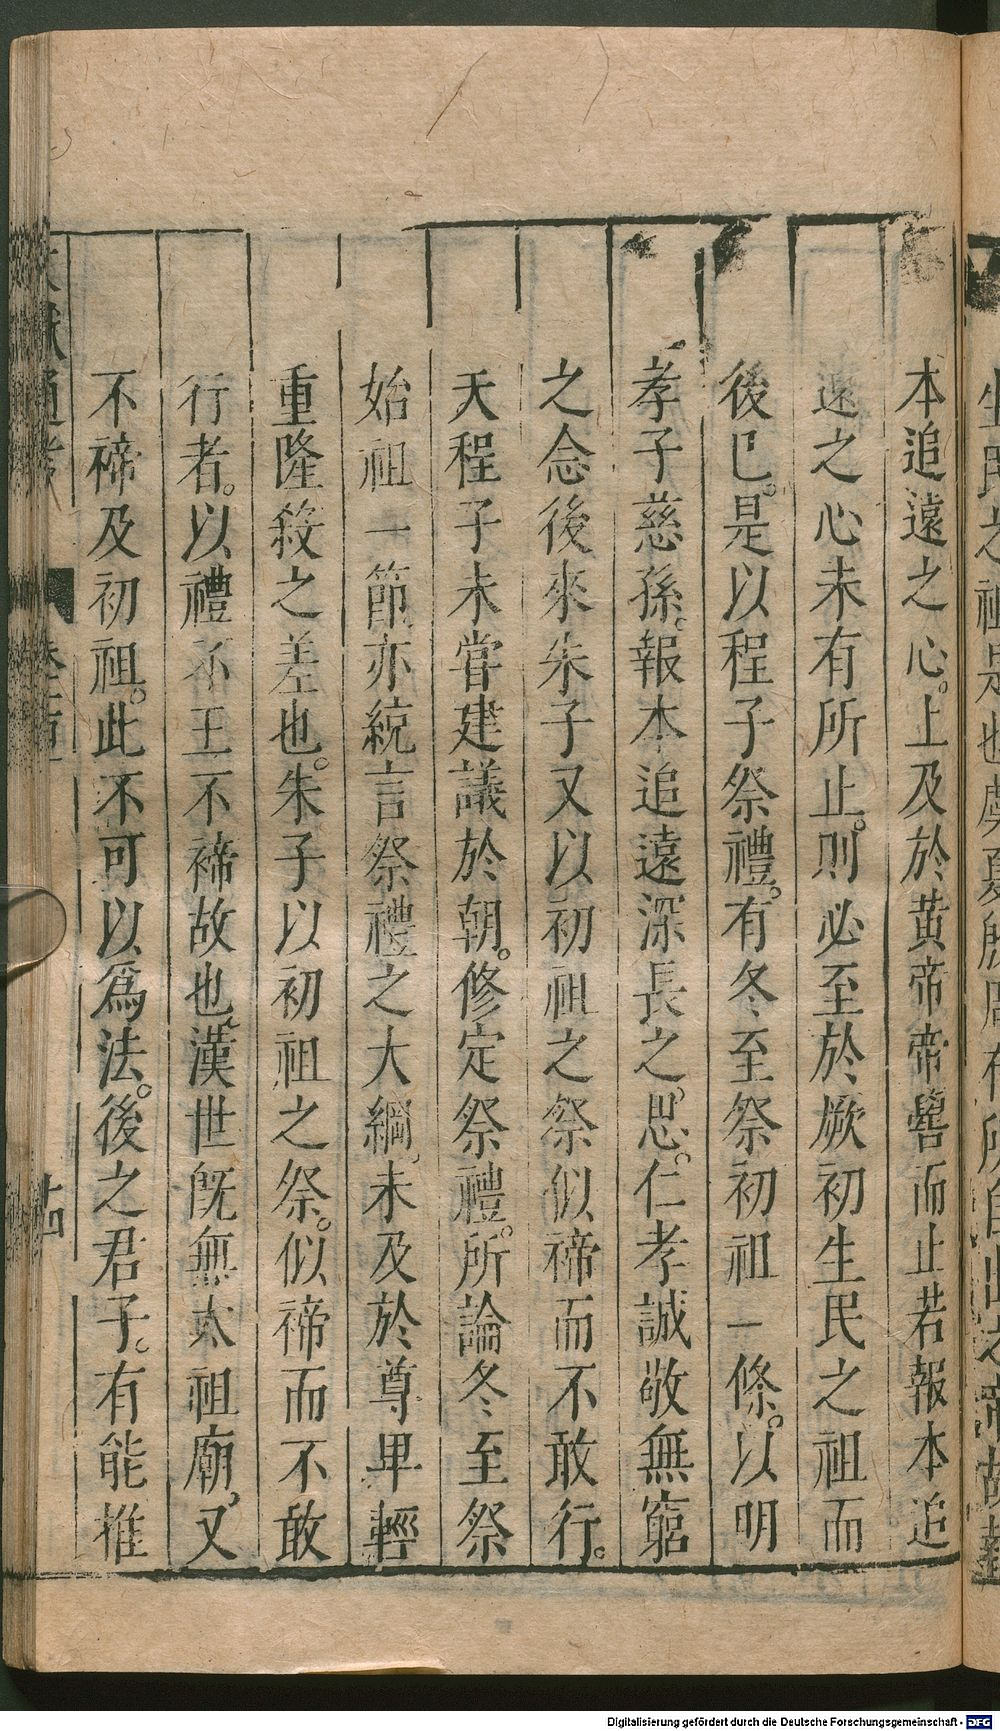 本追遠之心。上及於黄帝帝嚳而止若報本追
遠之心未有所止。則必至於厥初生民之祖而
後已。是以程子祭禮。有冬至祭初祖一條。以明
孝子慈孫。報本追遠深長之思。仁孝誠敬無窮
之念後來朱子又以初祖之祭似禘而不敢行。
夫程子未嘗建議於朝。修定祭禮。所論冬至祭
始祖一節亦統言祭禮之大綱。未及於尊卑輕
重隆殺之差也。朱子以初祖之祭。似禘而不敢
行者。以禮不王不禘故也。漢世既無太祖廟。又
不禘及初祖。此不可以爲法。後之君子。有能推
十四
Digitalisierung gefördert durch die Deutsche Forschungsgemeinschaft - DFG